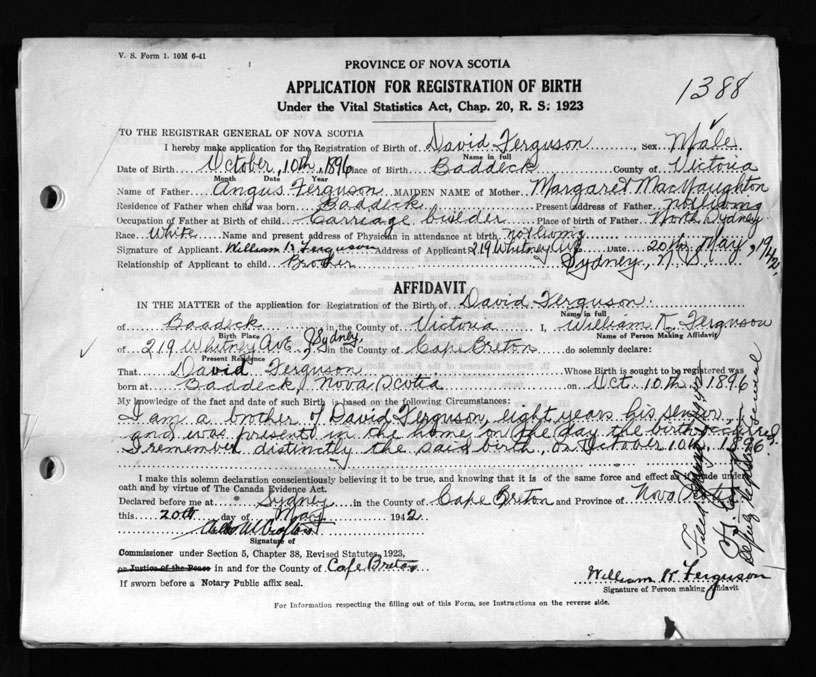 V. S. Form 1. 10M 6-41
PROVINCE OF NOVA SCOTIA
APPLICATION FOR REGISTRATION OF BIRTH
Under the Vital Statistics Act, Chap. 20, R. S. 1923
1388
TO THE REGISTRAR GENERAL OF NOVA SCOTIA
I hereby make application for the Registration of Birth of David Ferguson Sex Male
Name in full
Date of Birth October, 10th, 1896 Place of Birth Baddeck County of Victoria
Month Date Year
Name of Father Angus Ferguson MAIDEN NAME of Mother Margaret MacNaughton
Residence of Father when child was born Baddeck Present Address of Father not living
Occupation of Father at Birth of child Carriage builder Place of Birth of Father North Sydney
Race White Name and present address of Physician in attendance at birth not living
Signature of Applicant William K. Ferguson Address of Applicant 219 Whitney Ave Date 20th May, 1942,
Relationship of Applicant to child Brother Sydney, N. S.
AFFIDAVIT
IN THE MATTER of the application for Registration of the Birth of David Ferguson
Name in full
of Baddeck in the County of Victoria I, William K. Ferguson
Birth Place Name of Person Making Affidavit
of 219 Whitney Ave Sydney in the County of Cape Breton do solemnly declare:
Present Residence
That David Ferguson Whose Birth is sought to be registered was
born at Baddeck, Nova Scotia on Oct. 10th, 1896
My knowledge of the fact and date of such Birth is based on the following Circumstances:
I am a brother of David Ferguson, eight years his senior,
and was present in the home on the day the birth occurred.
I remember distinctly the said birth, on October 10th, 1896
I make this solemn declaration conscientiously believing it to be true, and knowing that it is of the same force and effect as if made under
oath and by virtue of The Canada Evidence Act.
Declared before me at Sydney in the County of Cape Breton and Province of Nova Scotia
this 20th day of May 1942
Signature of
Commissioner under Section 5, Chapter 38, Revised Statutes, 1923,
or Justice of the Peace in and for the County of Cape Breton
If sworn before a Notary Public affix seal.
William K. Ferguson
Signature of Person making Affidavit
For Information respecting the filling out of this Form, see Instructions on the reverse side.
Filed
Deputy Registrar General